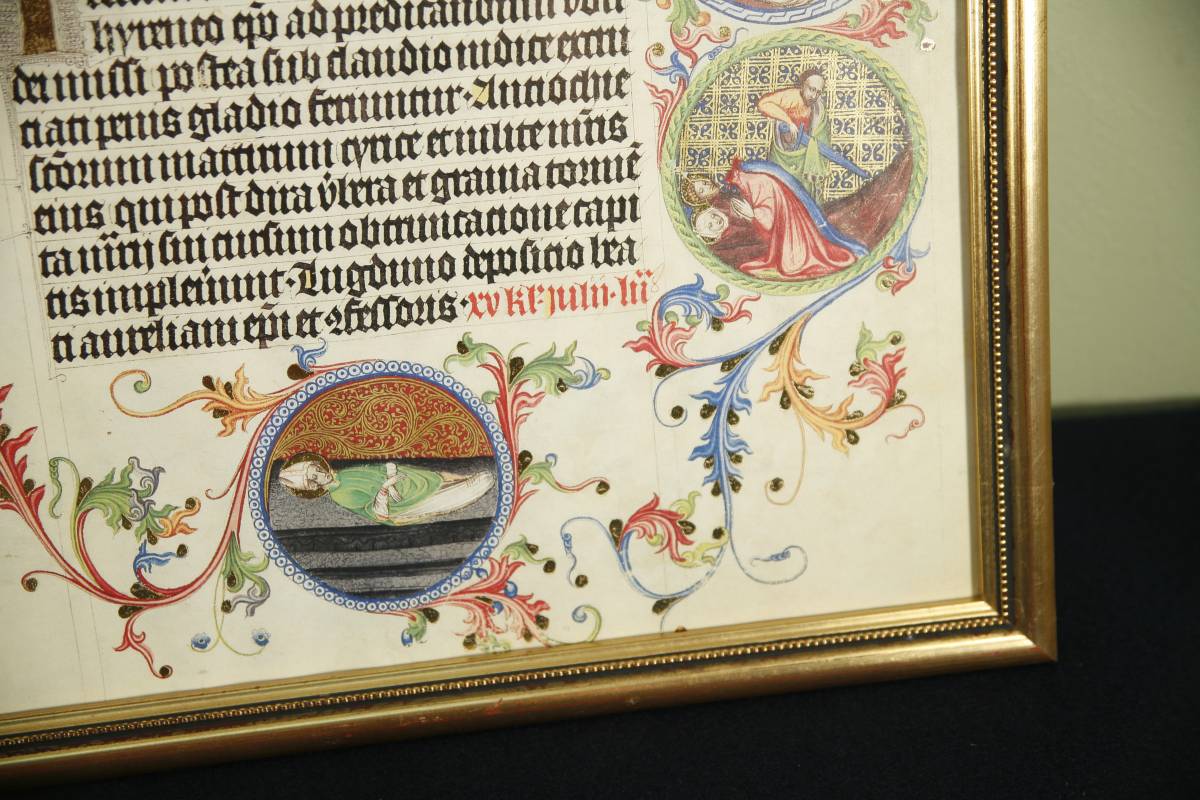 hyreneo ep̄o ad predicandum
dei missi postea sub claudio iudice excru
ciati prius gladio feriuntur · Antiochie
sc̄orum martirum cyrice et iulite mr̄is
eius qui post dira v̄bera et grauia tormē
ta mr̄ij sui cursum obtruncatione capi
tis impleuīunt · Lugduno deposicio bea
ti aureliani ep̄i et ꝯfessoris · xv kł iulii · lii